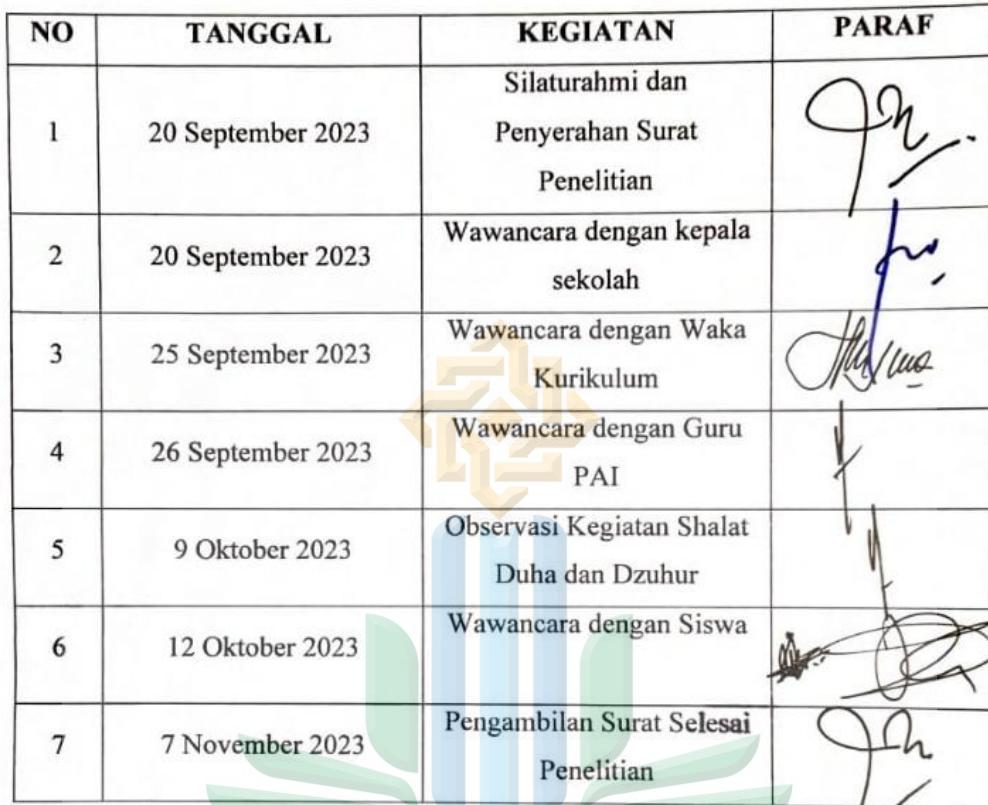 NO TANGGAL KEGIATAN PARAF
1 20 September 2023 Silaturahmi dan
Penyerahan Surat
Penelitian
2 20 September 2023 Wawancara dengan kepala
sekolah
3 25 September 2023 Wawancara dengan Waka
Kurikulum
4 26 September 2023 Wawancara dengan Guru
PAI
5 9 Oktober 2023 Observasi Kegiatan Shalat
Duha dan Dzuhur
6 12 Oktober 2023 Wawancara dengan Siswa
7 7 November 2023 Pengambilan Surat Selesai
Penelitian